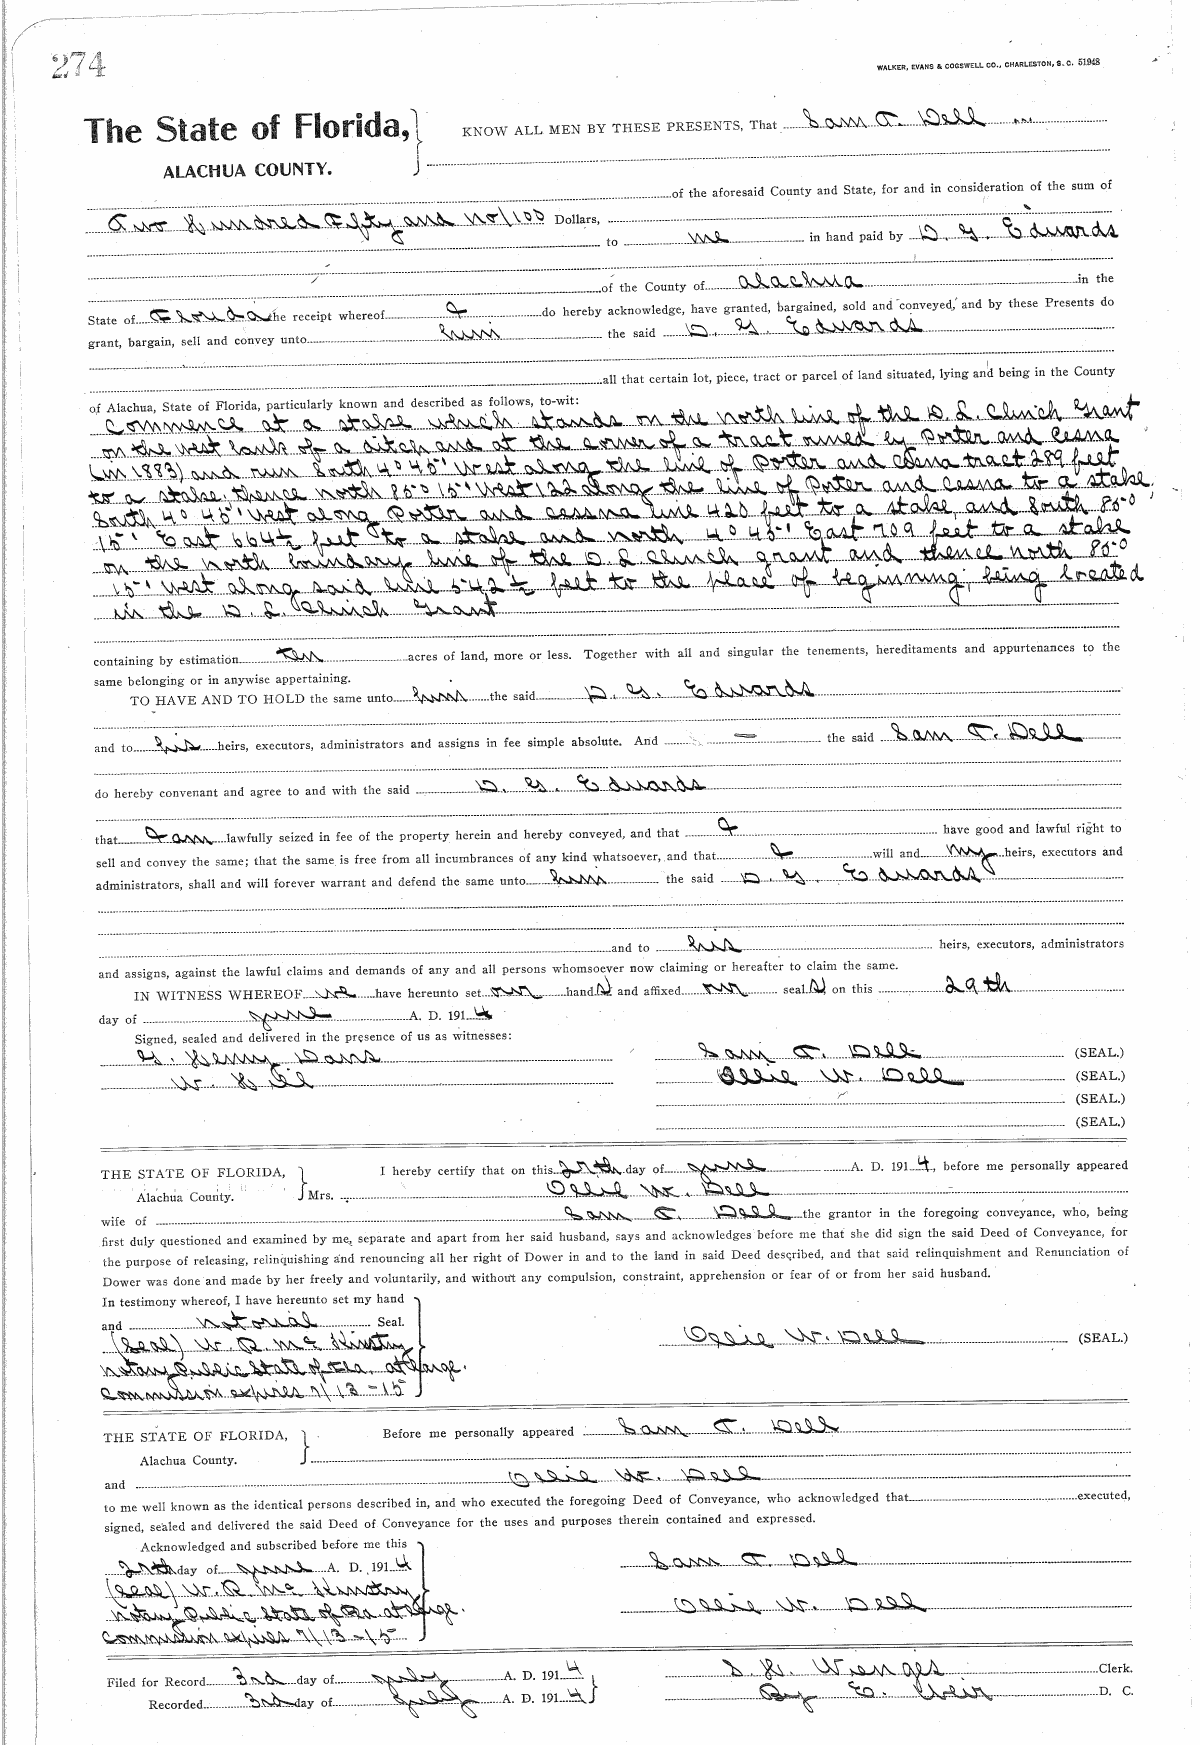 274
WALKER, EVANS & COGSWELL CO., CHARLESTON, S. C. 51948
The State of Florida,
ALACHUA COUNTY.
KNOW ALL MEN BY THESE PRESENTS, That Sam T. Dell
of the aforesaid County and State, for and in consideration of the sum of
Two Hundred Fifty and no/100 Dollars,
to me in hand paid by D. G. Edwards
of the County of Alachua in the
State of Florida the receipt whereof I do hereby acknowledge, have granted, bargained, sold and conveyed, and by these Presents do
grant, bargain, sell and convey unto him the said D. G. Edwards
all that certain lot, piece, tract or parcel of land situated, lying and being in the County
of Alachua, State of Florida, particularly known and described as follows, to-wit:
Commence at a stake which stands on the north line of the D. L. Clinch Grant
on the west bank of a ditch and at the corner of a tract owned by Porter and Cesna
(in 1883) and run South 4° 45' West along the line of Porter and Cesna tract 289 feet
to a stake, thence north 85° 15' West 122 along the line of Porter and Cesna to a stake,
South 4° 45' West along Porter and Cessna line 420 feet to a stake, and South 85°
15' East 664½ feet to a stake and north 4° 45' East 709 feet to a stake
on the north boundary line of the D. L. Clinch grant and thence north 85°
15' West along said line 542½ feet to the place of beginning; being located
in the D. L. Clinch Grant
containing by estimation ten acres of land, more or less. Together with all and singular the tenements, hereditaments and appurtenances to the
same belonging or in anywise appertaining.
TO HAVE AND TO HOLD the same unto him the said D. G. Edwards
and to his heirs, executors, administrators and assigns in fee simple absolute. And — the said Sam T. Dell
do hereby convenant and agree to and with the said D. G. Edwards
that I am lawfully seized in fee of the property herein and hereby conveyed, and that I have good and lawful right to
sell and convey the same; that the same is free from all incumbrances of any kind whatsoever, and that I will and my heirs, executors and
administrators, shall and will forever warrant and defend the same unto him the said D. G. Edwards
and to his heirs, executors, administrators
and assigns, against the lawful claims and demands of any and all persons whomsoever now claiming or hereafter to claim the same.
IN WITNESS WHEREOF we have hereunto set our hands and affixed our seals on this 29th
day of June A. D. 1914
Signed, sealed and delivered in the presence of us as witnesses:
G. Henry Davis Sam T. Dell (SEAL.)
W. Hill Ollie W. Dell (SEAL.)
(SEAL.)
(SEAL.)
THE STATE OF FLORIDA,
Alachua County.
I hereby certify that on this 29th day of June A. D. 1914, before me personally appeared
Mrs. Ollie W. Dell
wife of Sam T. Dell the grantor in the foregoing conveyance, who, being
first duly questioned and examined by me, separate and apart from her said husband, says and acknowledges before me that she did sign the said Deed of Conveyance, for
the purpose of releasing, relinquishing and renouncing all her right of Dower in and to the land in said Deed described, and that said relinquishment and Renunciation of
Dower was done and made by her freely and voluntarily, and without any compulsion, constraint, apprehension or fear of or from her said husband.
In testimony whereof, I have hereunto set my hand
and notorial Seal.
(Seal) W. R. McKinstry Ollie W. Dell (SEAL.)
Notary Public State of Fla. at large.
Commission expires 7/13-15
THE STATE OF FLORIDA,
Alachua County.
Before me personally appeared Sam T. Dell
and Ollie W. Dell
to me well known as the identical persons described in, and who executed the foregoing Deed of Conveyance, who acknowledged that executed,
signed, sealed and delivered the said Deed of Conveyance for the uses and purposes therein contained and expressed.
Acknowledged and subscribed before me this
29th day of June A. D. 1914 Sam T. Dell
(Seal) W. R. McKinstry
Notary Public State of Fla. at large. Ollie W. Dell
Commission expires 7/13-15
Filed for Record 3rd day of July A. D. 1914 S. H. Wienges Clerk.
Recorded 3rd day of July A. D. 1914 By E. Weir D. C.